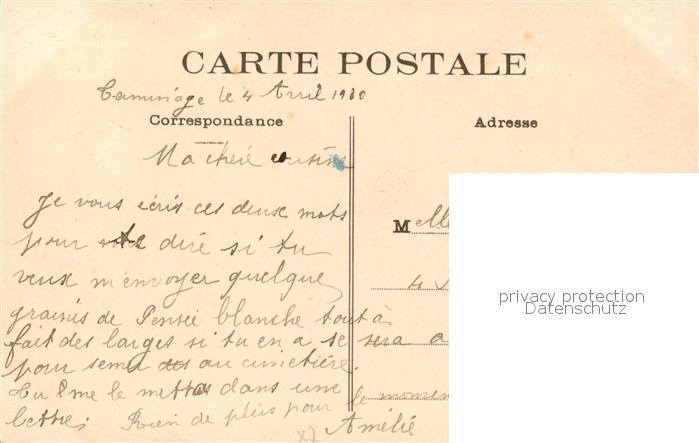 CARTE POSTALE
le 4 Avril 1910
Correspondance
Adresse
Ma cheré cousine
Je vous écris ces deux mots
pour te diré si tu
veux m'envoyer quelque
grainis de Pensée blanche tout à
fait des larges si tu en a se sera a
pour semer au cimetiére.
tu me le mettra dans une
lettre; Rien de plus pour le momen
Amélié
M elle
4
privacy protection
Datenschutz